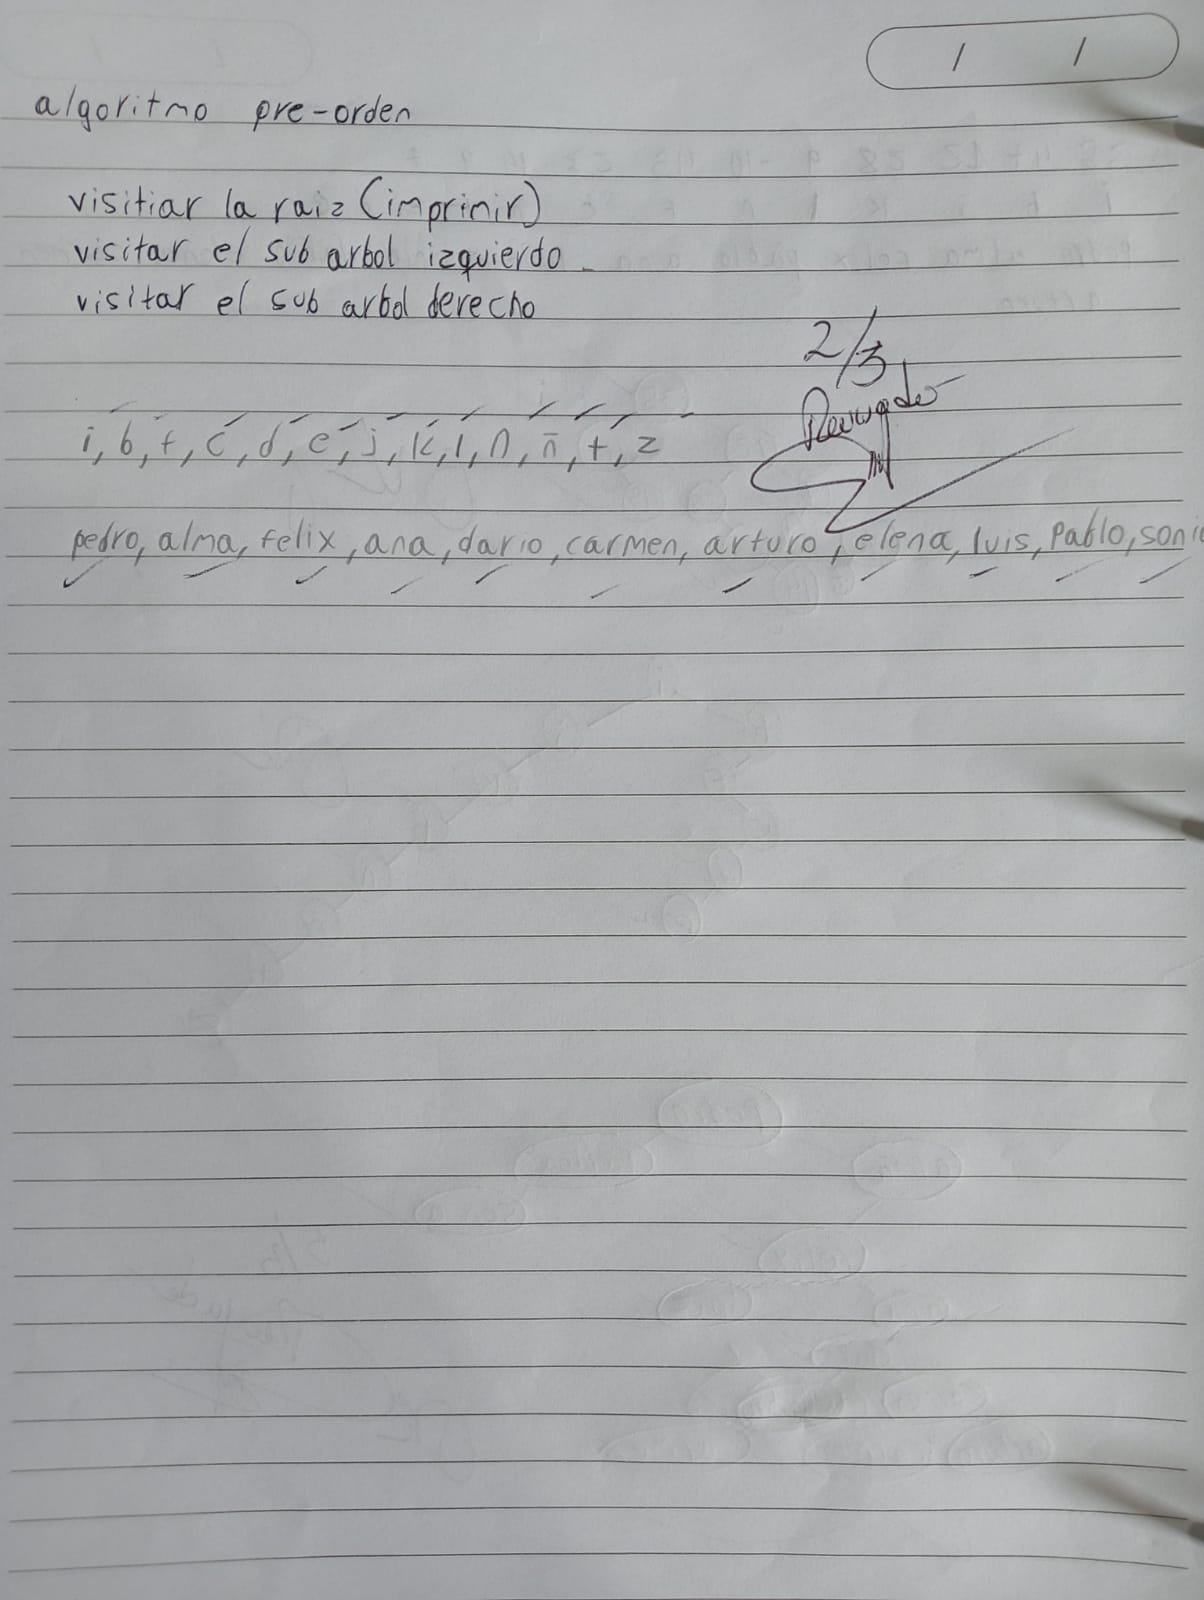 / /
algoritmo pre-orden
visitiar la raiz (imprimir)
visitar el sub arbol izquierdo
visitar el sub arbol derecho
2/3
i, b, f, c, d, e, j, k, l, n, ñ, t, z
pedro, alma, felix, ana, dario, carmen, arturo, elena, luis, Pablo, sonia